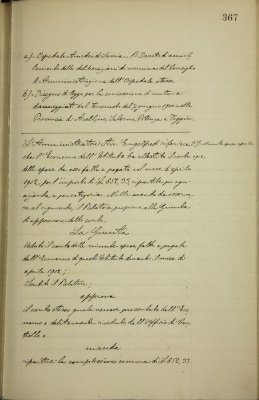 367
a). Ospedale Amedeo di Savoia. R. Decreto di annul-
lamento delle deliberazioni di nomina del Consiglio
d'Amministrazione dell'Ospedale stesso.
b). Disegno di legge per la concessione di mutui a
danneggiati dal terremoto del 7 giugno 1910 nelle
Provincie di Avellino, Salerno, Potenza e Foggia.
L'Amministratore Avv.
che l'Economo dell'Istituto ha allestito il conto
delle spese da esso fatte e pagate nel mese di aprile
1912, per l'importo di L. 852,33, ripartite per ogni
azienda e per categoria.
al riguardo, il Relatore propone alla Giunta
di approvare detto conto.
La Giunta
Veduto il conto delle minute spese fatte e pagate
dall'Economo di questo Istituto durante il mese di
aprile 1912;
Sentito il Relatore;
approva
il conto stesso quale venne presentato dall'Eco-
nomo e debitamente veduto dall'Ufficio di Con-
trollo e
manda
ripartirsi la complessiva somma di L. 852,33